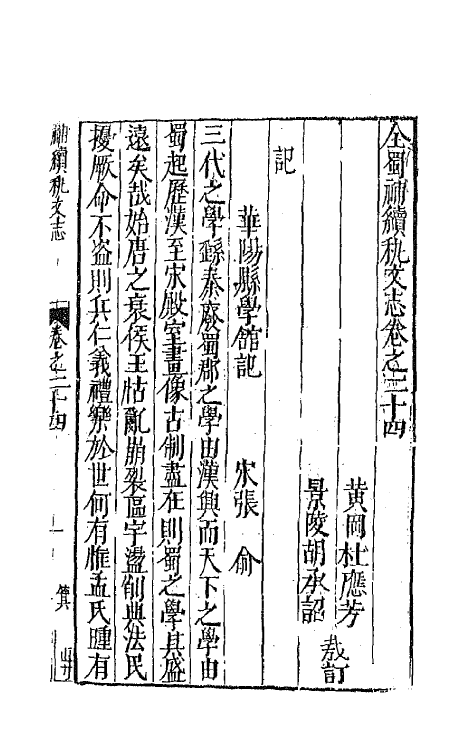 全蜀補續秇文志卷之三十四
黃岡杜應芳
景陵胡承詔
裁訂
記
華陽縣學館記
宋張俞
三代之學繇秦廢蜀郡之學由漢興而天下之學由
蜀起歷漢至宋殿室畫像古制盡在則蜀之學其盛
遠矣哉始唐之衰侯王怙亂崩裂區宇盪削典法民
擾厥命不盜則兵仁義禮樂於世何有惟孟氏踵有
補續秇文志
卷之三十四
一